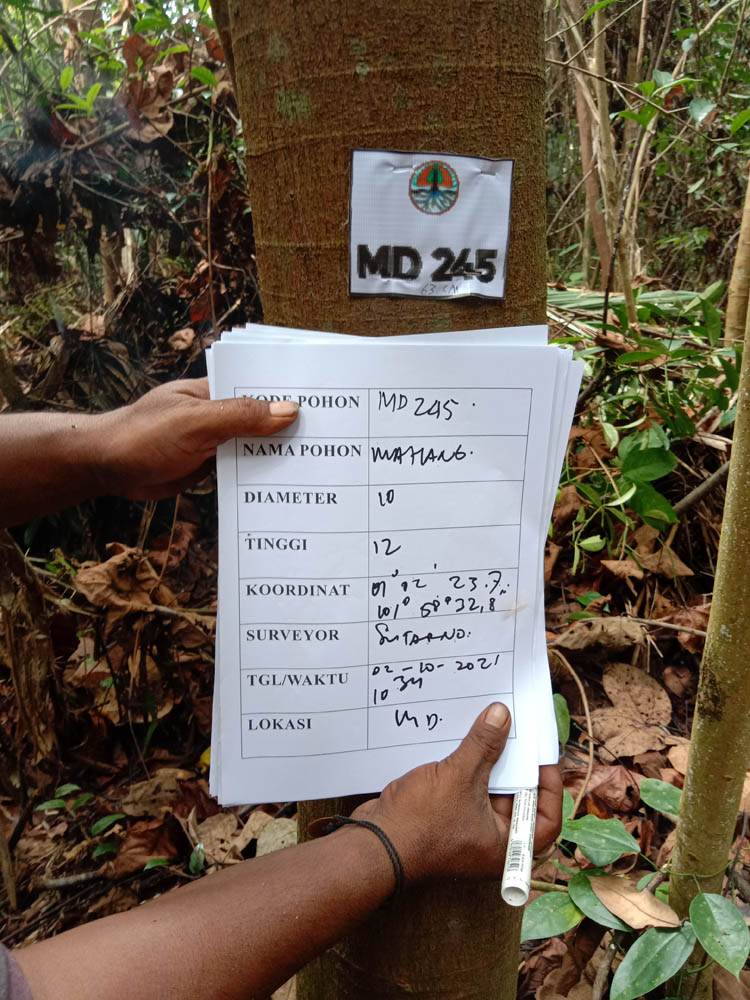 MD 245
63 CM
KODE POHON MD 245.
NAMA POHON MAHANG.
DIAMETER 10
TINGGI 12
KOORDINAT 01° 02' 23.7"
101° 50' 32,8
SURVEYOR SUTARNO.
TGL/WAKTU 02-10-2021
10 34
LOKASI MD.